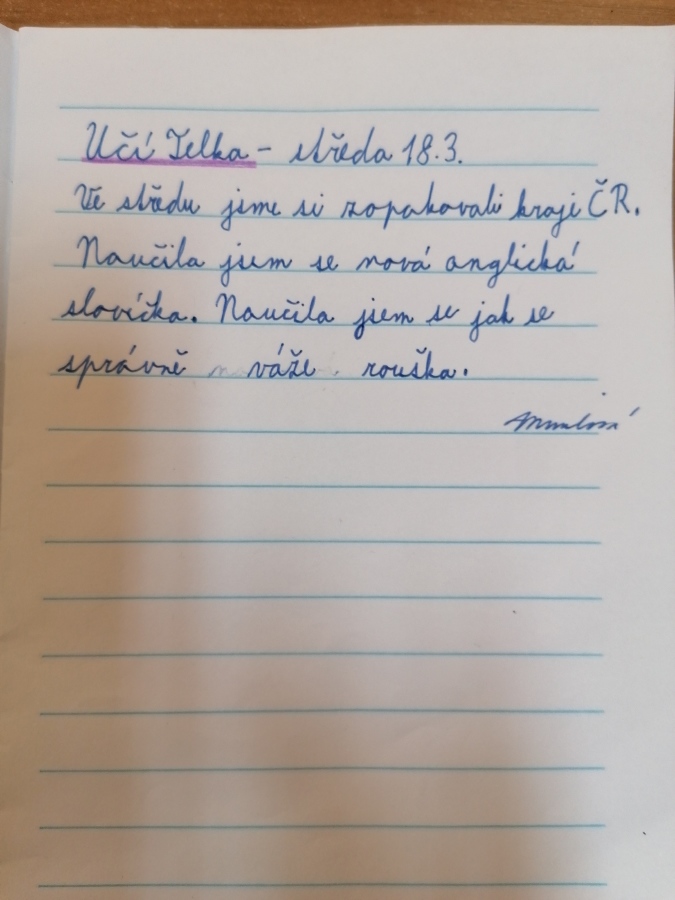 Učí Telka - středa 18.3.
Ve středu jsme si zopakovali kraji ČR.
Naučila jsem se nová anglická
slovíčka. Naučila jsem se jak se
správně váže rouška.